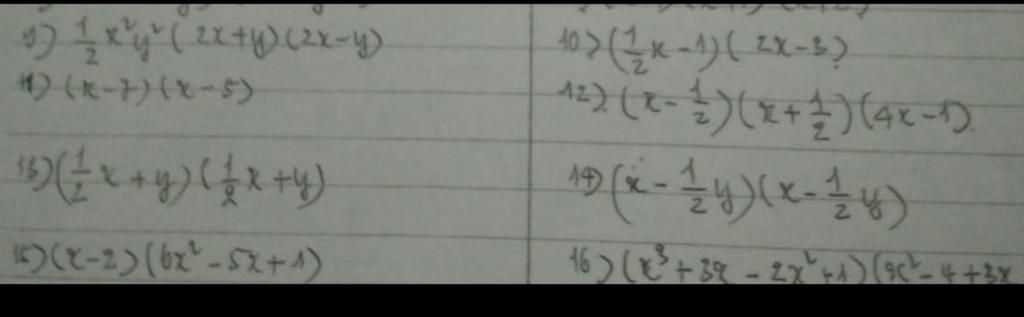 9) 1/2 x²y² (2x+y)(2x-y)
10) (1/2 x - 1)(2x - 3)
11) (x-7)(x-5)
12) (x - 1/2)(x + 1/2)(4x-1)
13) (1/2 x + y)(1/2 x + y)
14) (x - 1/2 y)(x - 1/2 y)
15) (x-2)(6x² - 5x + 1)
16) (x³ + 3x - 2x² + 1)(9x² - 4 + 3x